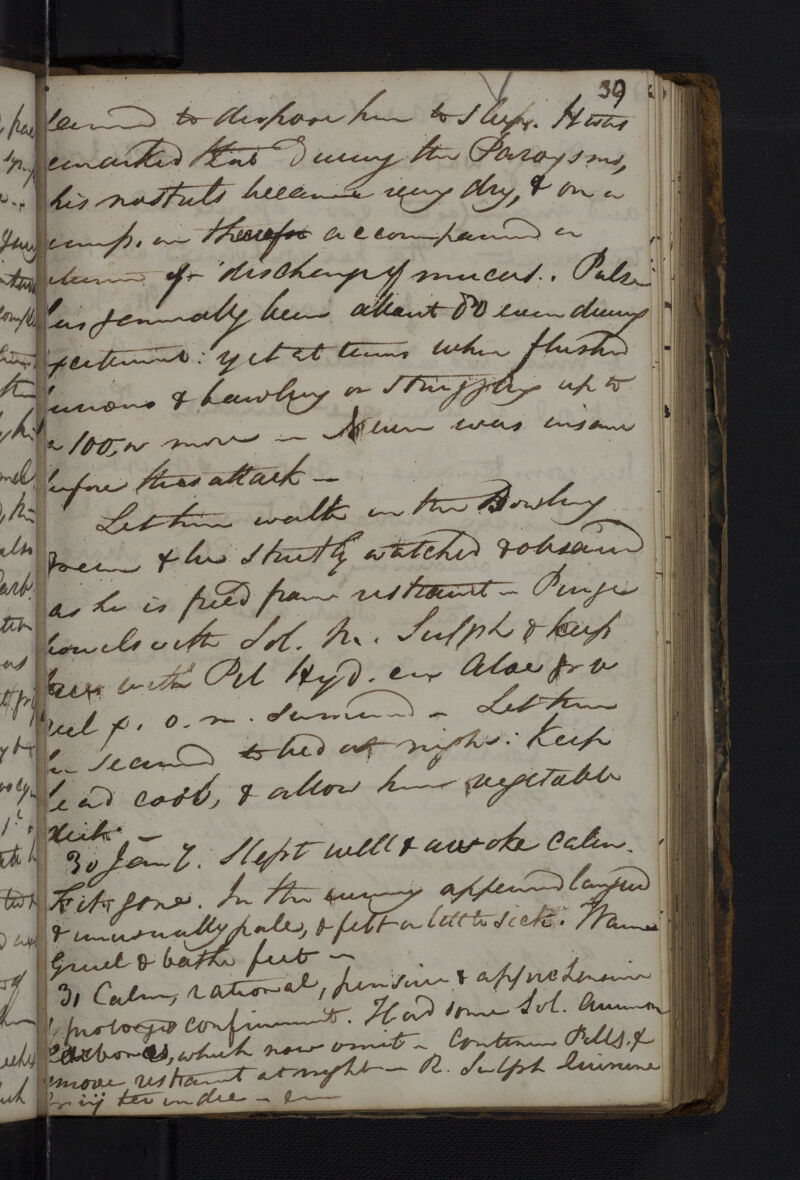 39
seemed to dispose him to sleep. It was
remarked that During the Paroxysms,
his nostrils became very dry, & on a
accompanied a
return of discharge of mucus. Pulse
has generally been about 80 even during
excitement: yet at times when flushed
furious & bawling or struggling up to
a 100, or more — Never was insane
before this attack —
Let him walk in the Bowling
Green & be strictly watched & observed
as he is freed from restraint — Purge
bowels with Sol. M. Sulph & keep
free with Pil Hyd. cum Aloe gr v
o. n. — Let him
be secured to bed at night: Keep
head cool, & allow him vegetable
diet —
30 Jany. Slept well & awoke calm.
Fit gone. In the evening appeared languid
& unusually pale, & felt a little sick. Warm
Gruel & bathe feet —
31 Calm, rational, pensive & apprehensive
of prolonged confinement. Had some Sol. Ammon
Carbonas, which now omit — Continue Pills &
remove restraint at night — R. Sulph Quinine
gr iij ter in die —